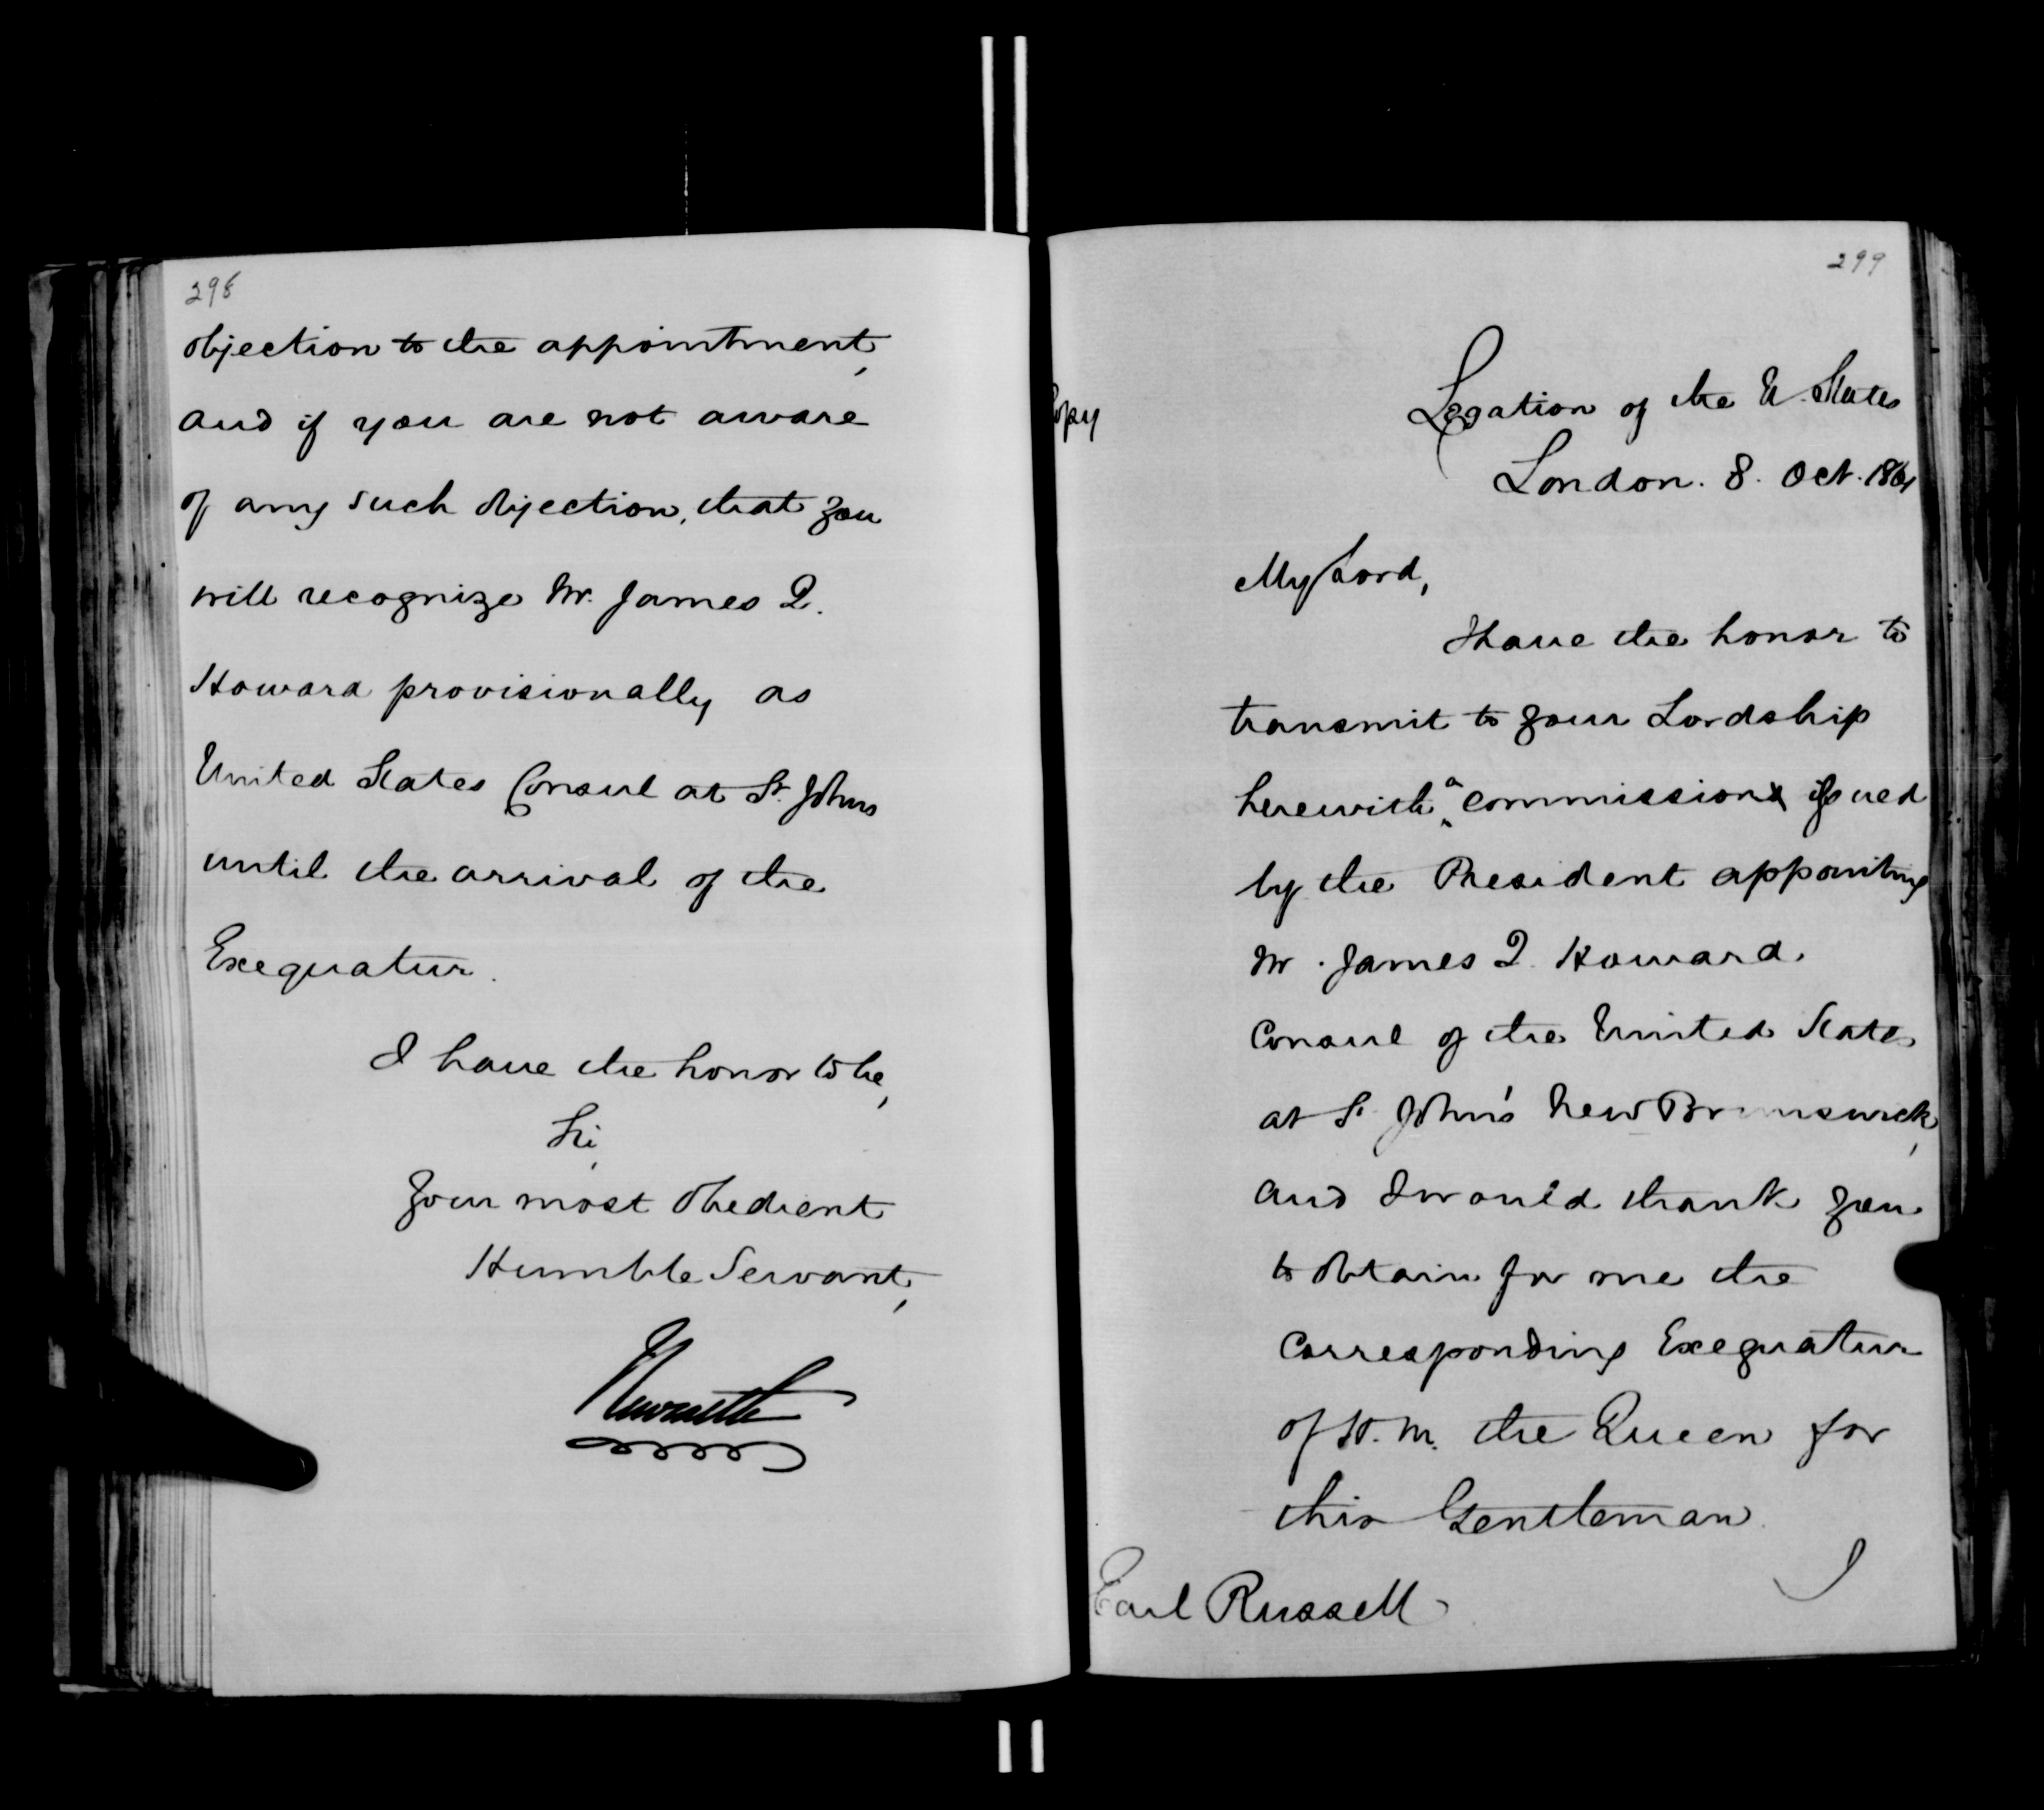 298
objection to the appointment,
and if you are not aware
of any such objection, that you
will recognize Mr. James Q.
Howard provisionally as
United States Consul at St. Johns
until the arrival of the
Exequatur.
I have the honor to be,
Sir,
Your most obedient
Humble Servant,
Newcastle
299
Copy
Legation of the U. States
London. 8. Oct. 1861
My Lord,
I have the honor to
transmit to your Lordship
herewith a commission issued
by the President appointing
Mr. James Q. Howard.
Consul of the United States
at St. John's New Brunswick,
and I would thank you
to obtain for me the
corresponding Exequatur
of H. M. the Queen for
this Gentleman.
I
Earl Russell